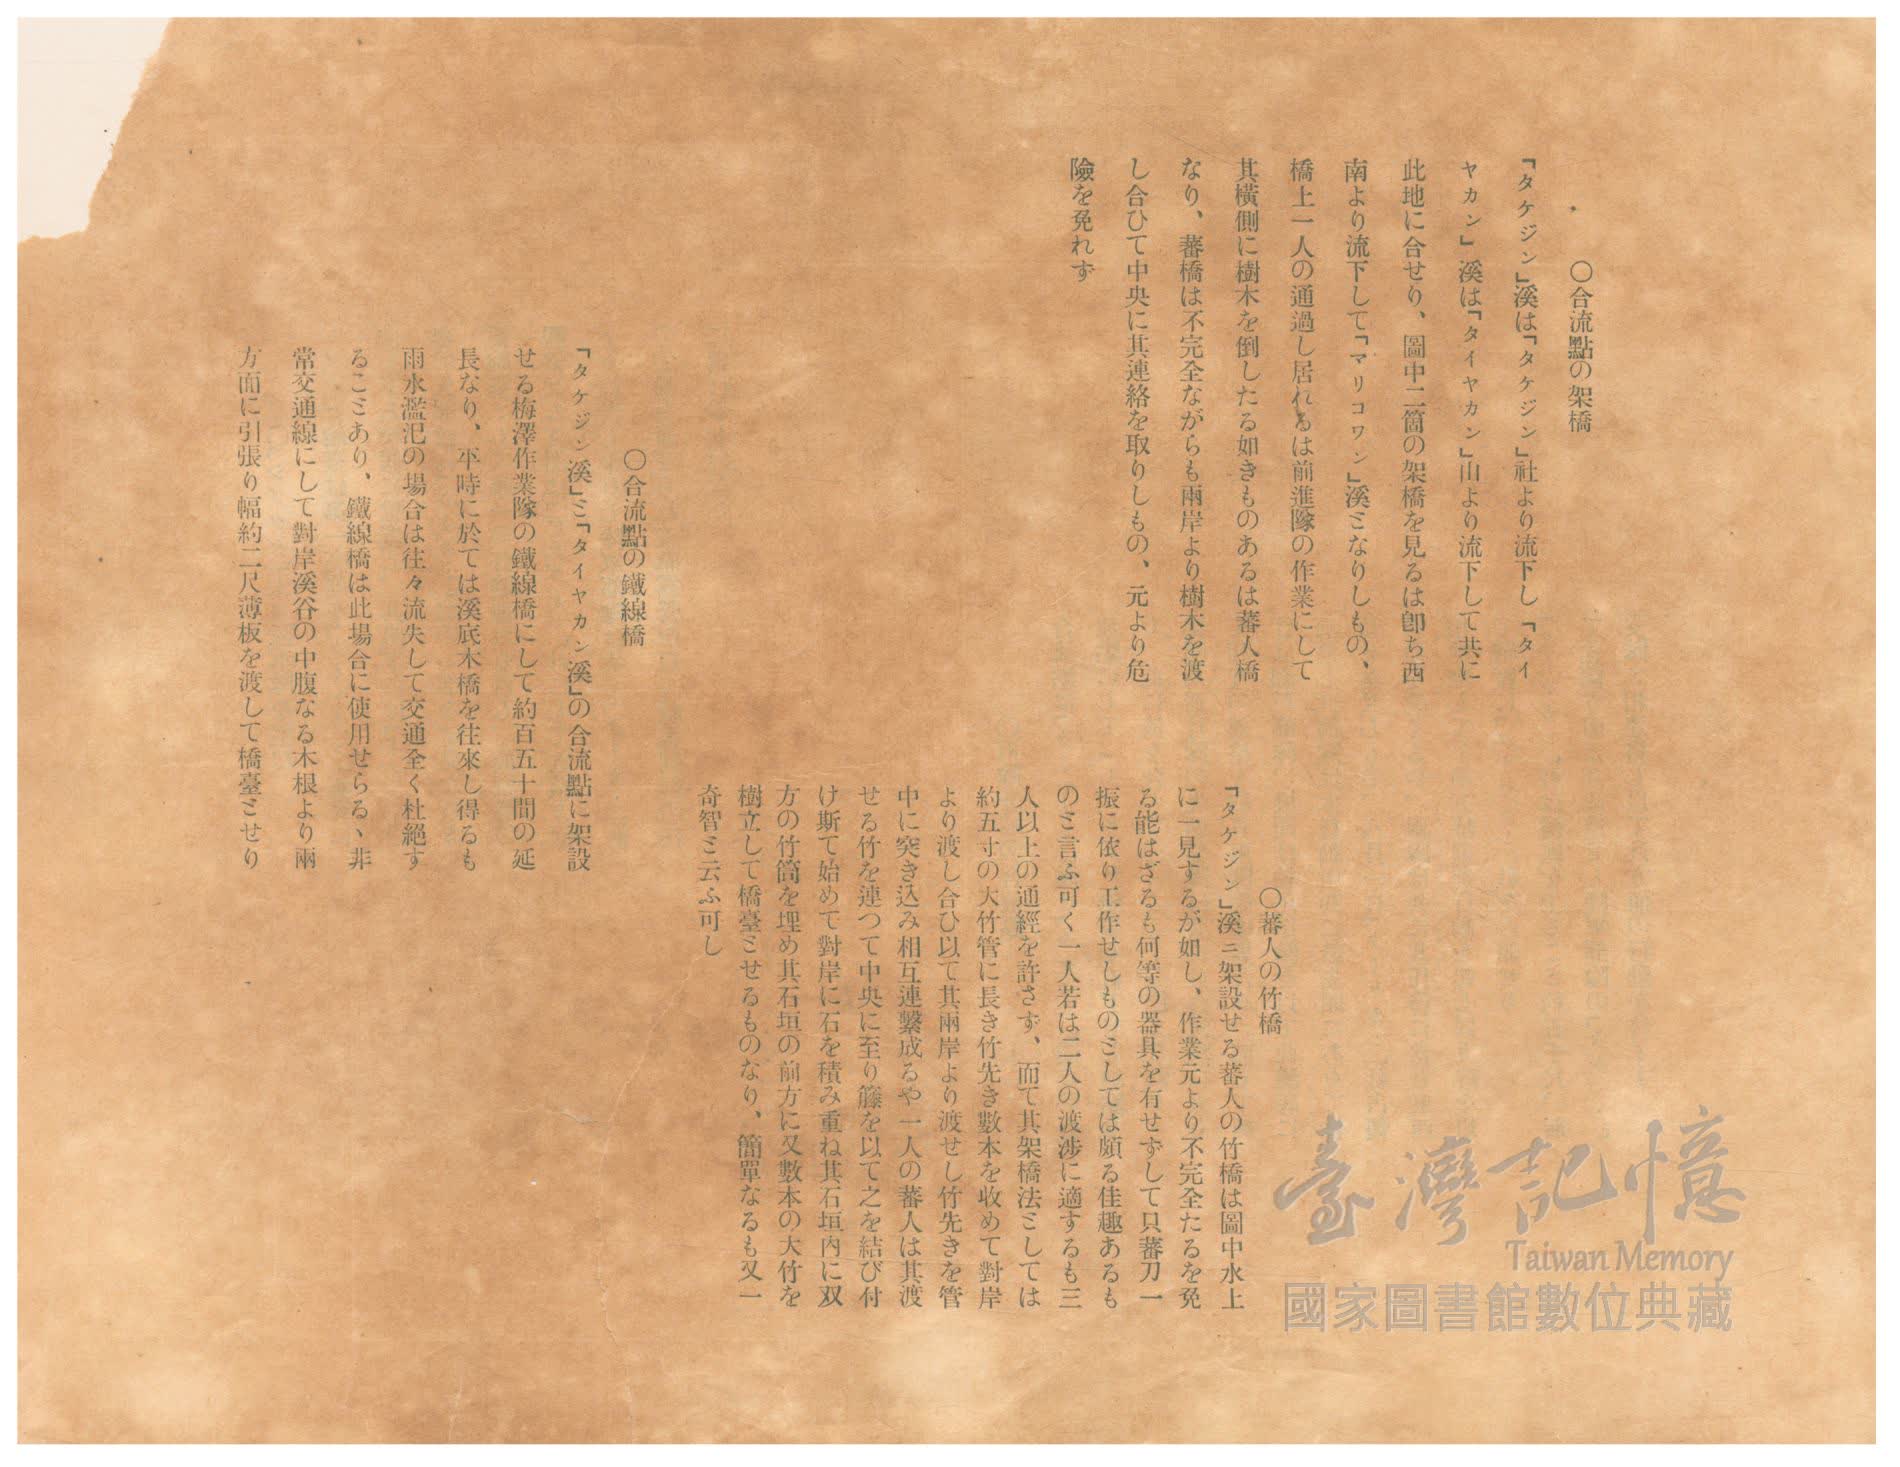 〇合流點の架橋
「タケジン」溪は「タケジン」社より流下し「タイ
ヤカン」溪は「タイヤカン」山より流下して共に
此地に合せり、圖中二箇の架橋を見るは卽ち西
南より流下して「マリコワン」溪ミなりしもの、
橋上一人の通過し居れるは前進隊の作業にして
其橫側に樹木を倒したる如きものあるは蕃人橋
なり、蕃橋は不完全ながらも兩岸より樹木を渡
し合ひて中央に其連絡を取りしもの、元より危
險を免れず
〇合流點の鐵線橋
「タケジン溪」ミ「タイヤカン溪」の合流點に架設
せる梅澤作業隊の鐵線橋にして約百五十間の延
長なり、平時に於ては溪底木橋を往來し得るも
雨水濫汜の場合は往々流失して交通全く杜絕す
るこミあり、鐵線橋は此場合に使用せらるヽ非
常交通線にして對岸溪谷の中腹なる木根より兩
方面に引張り幅約二尺薄板を渡して橋臺ミせり
〇蕃人の竹橋
「タケジン」溪ニ架設せる蕃人の竹橋は圖中水上
に一見するが如し、作業元より不完全たるを免
る能はざるも何等の器具を有せずして只蕃刀一
振に依り工作せしものミしては頗る佳趣あるも
のミ言ふ可く一人若は二人の渡涉に適するも三
人以上の通經を許さず、而て其架橋法ミしては
約五寸の大竹管に長き竹先き數本を收めて對岸
より渡し合ひ以て其兩岸より渡せし竹先きを管
中に突き込み相互連繫成るや一人の蕃人は其渡
せる竹を連つて中央に至り籐を以て之を結び付
け斯て始めて對岸に石を積み重ね其石垣內に双
方の竹筒を埋め其石垣の前方に又數本の大竹を
樹立して橋臺ミせるものなり、簡單なるも又一
奇智ミ云ふ可し
臺灣記憶
Taiwan Memory
國家圖書館數位典藏